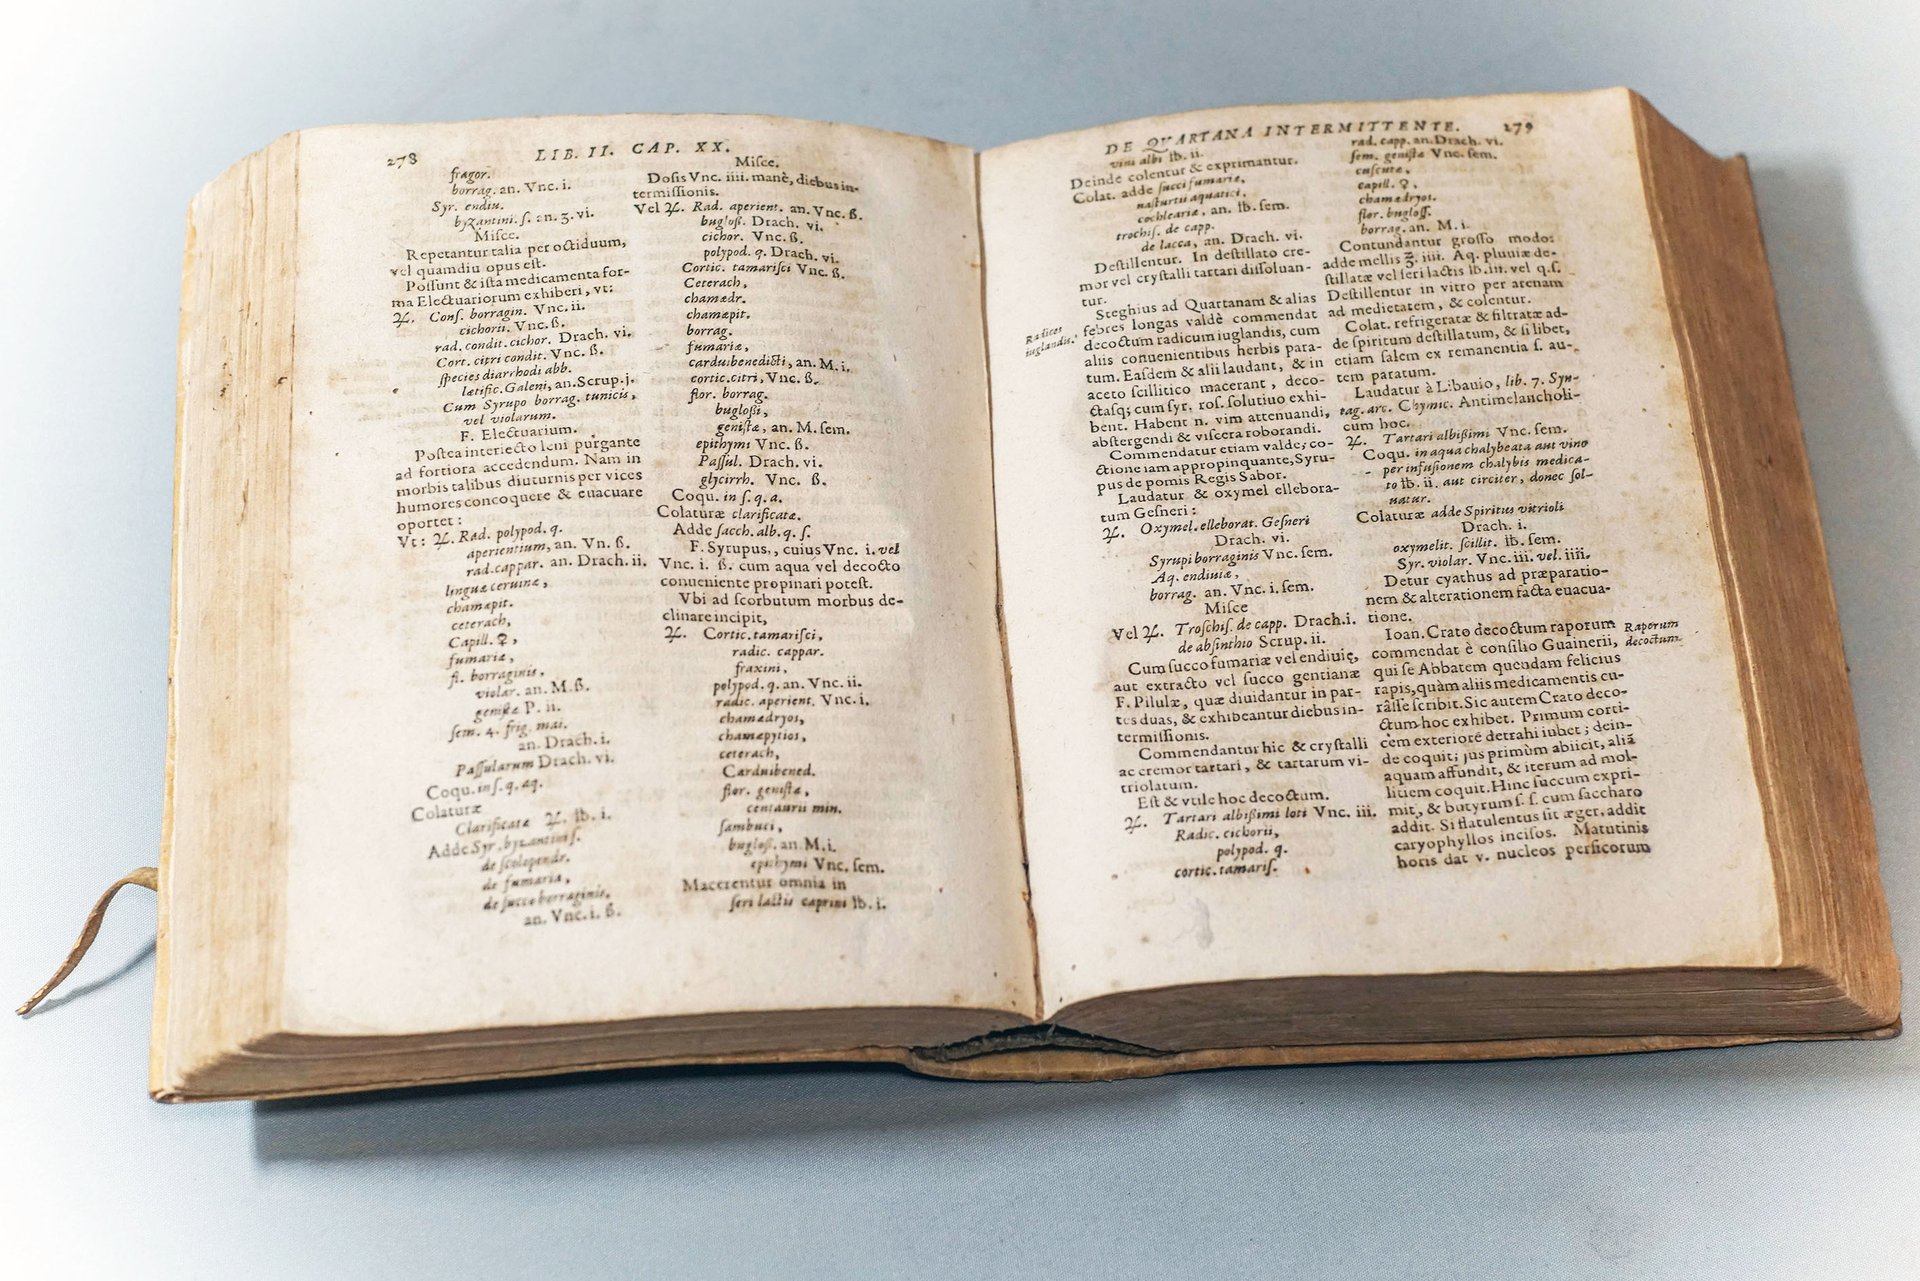 278
LIB. II. CAP. XX.
fragor.
borrag. an. Vnc. i.
Syr. endiu.
byzantini. ſ. an. ʒ. vi.
Miſce.
Repetantur talia per octiduum,
vel quamdiu opus eſt.
Poſſunt & iſta medicamenta for-
ma Electuariorum exhiberi, vt:
♃. Conſ. borragin. Vnc. ii.
cichorii. Vnc. ß.
rad. condit. cichor. Drach. vi.
Cort. citri condit. Vnc. ß.
ſpecies diarrhodi abb.
lætific. Galeni, an. Scrup. j.
Cum Syrupo borrag. tunicis,
vel violarum.
F. Electuarium.
Poſtea interiecto leni purgante
ad fortiora accedendum. Nam in
morbis talibus diuturnis per vices
humores concoquere & euacuare
oportet:
Vt: ♃. Rad. polypod. q.
aperientium, an. Vn. ß.
rad. cappar. an. Drach. ii.
linguæ ceruinæ,
chamæpit.
ceterach,
Capill. ♀,
fumariæ,
fl. borraginis,
violar. an. M. ß.
geniſtæ P. ii.
ſem. 4. frig. mai.
an. Drach. i.
Paſſularum Drach. vi.
Coqu. in ſ. q. aq.
Colaturæ
Clarificatæ ♃. lb. i.
Adde Syr. byzantini ſ.
de ſcolopendr.
de fumaria,
de ſucco borraginis.
an. Vnc. i. ß.
Miſce.
Doſis Vnc. iiii. manè, diebus in-
termiſſionis.
Vel ♃. Rad. aperient. an. Vnc. ß.
bugloß. Drach. vi.
cichor. Vnc. ß.
polypod. q. Drach. vi.
Cortic. tamariſci Vnc. ß.
Ceterach,
chamædr.
chamæpit.
borrag.
fumariæ,
cardui benedicti, an. M. i.
cortic. citri, Vnc. ß.
flor. borrag.
bugloßi,
geniſtæ, an. M. ſem.
epithymi Vnc. ß.
Paſſul. Drach. vi.
glycirrh. Vnc. ß.
Coqu. in ſ. q. a.
Colaturæ clarificatæ.
Adde ſacch. alb. q. ſ.
F. Syrupus, cuius Vnc. i. vel
Vnc. i. ß. cum aqua vel decocto
conueniente propinari poteſt.
Vbi ad ſcorbutum morbus de-
clinare incipit,
♃. Cortic. tamariſci,
radic. cappar.
fraxini,
polypod. q. an. Vnc. ii.
radic. aperient. Vnc. i.
chamædryos,
chamæpytios,
ceterach,
Cardui bened.
flor. geniſtæ,
centaurii min.
ſambuci,
bugloß. an. M. i.
epithymi Vnc. ſem.
Macerentur omnia in
ſeri lactis caprini lb. i.
DE QVARTANA INTERMITTENTE.
279
vini albi lb. ii.
Deinde colentur & exprimantur.
Colat. adde ſucci fumariæ,
naſturtii aquatici,
cochleariæ, an. lb. ſem.
trochiſ. de capp.
de lacca, an. Drach. vi.
Deſtillentur. In deſtillato cre-
mor vel cryſtalli tartari diſſoluan-
tur.
Steghius ad Quartanam & alias
febres longas valdè commendat
decoctum radicum iuglandis, cum
aliis conuenientibus herbis para-
tum. Eaſdem & alii laudant, & in
aceto ſcillitico macerant, deco-
ctaſq; cum ſyr. roſ. ſolutiuo exhi-
bent. Habent n. vim attenuandi,
abſtergendi & viſcera roborandi.
Commendatur etiam valde, co-
ctione iam appropinquante, Syru-
pus de pomis Regis Sabor.
Laudatur & oxymel ellebora-
tum Geſneri:
♃. Oxymel. elleborat. Geſneri
Drach. vi.
Syrupi borraginis Vnc. ſem.
Aq. endiuiæ,
borrag. an. Vnc. i. ſem.
Miſce
Vel ♃. Trochiſ. de capp. Drach. i.
de abſinthio Scrup. ii.
Cum ſucco fumariæ vel endiuię,
aut extracto vel ſucco gentianæ
F. Pilulæ, quæ diuidantur in par-
tes duas, & exhibeantur diebus in-
termiſſionis.
Commendantur hic & cryſtalli
ac cremor tartari, & tartarum vi-
triolatum.
Eſt & vtile hoc decoctum.
♃. Tartari albißimi loti Vnc. iii.
Radic. cichorii,
polypod. q.
cortic. tamariſ.
Radices
iuglandis.
rad. capp. an. Drach. vi.
ſem. geniſtæ Vnc. ſem.
cuſcutæ,
capill. ♀,
chamædryos.
flor. bugloſſ.
borrag. an. M. i.
Contundantur groſſo modo:
adde mellis ℥. iiii. Aq. pluuiæ de-
ſtillatæ vel ſeri lactis lb. iii. vel q. ſ.
Deſtillentur in vitro per arenam
ad medietatem, & colentur.
Colat. refrigeratæ & filtratæ ad-
de ſpiritum deſtillatum, & ſi libet,
etiam ſalem ex remanentia ſ. au-
tem paratum.
Laudatur à Libauio, lib. 7. Syn-
tag. arc. Chymic. Antimelancholi-
cum hoc.
♃. Tartari albißimi Vnc. ſem.
Coqu. in aqua chalybeata aut vino
per infuſionem chalybis medica-
to lb. ii. aut circiter, donec ſol-
uatur.
Colaturæ adde Spiritus vitrioli
Drach. i.
oxymelit. ſcillit. lb. ſem.
Syr. violar. Vnc. iii. vel. iiii.
Detur cyathus ad præparatio-
nem & alterationem facta euacua-
tione.
Ioan. Crato decoctum raporum
commendat è conſilio Guainerii,
qui ſe Abbatem quendam felicius
rapis, quàm aliis medicamentis cu-
râſſe ſcribit. Sic autem Crato deco-
ctum hoc exhibet. Primum corti-
cem exteriorē detrahi iubet; dein-
de coquit; jus primùm abiicit, aliā
aquam affundit, & iterum ad mol-
litiem coquit. Hinc ſuccum expri-
mit, & butyrum ſ. ſ. cum ſaccharo
addit. Si flatulentus ſit æger, addit
caryophyllos inciſos. Matutinis
horis dat v. nucleos perſicorum
Raporum
decoctum.